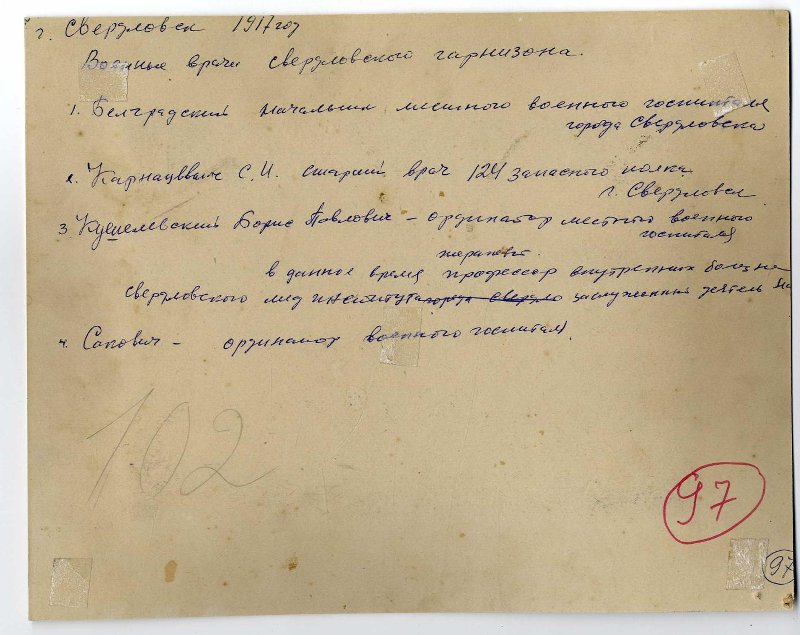 г. Свердловск 1917 год
Военные врачи свердловского гарнизона.
1. Белградский начальник местного военного госпиталя
города Свердловска
2. Карнацевич С.И. старший врач 124 запасного полка
г. Свердловск
3 Кушелевский Борис Павлович – ординатор местного военного
госпиталя
терапевт.
в данное время профессор внутренних болезней
свердловского мед института города свердло заслуженный деятель На
4. Сапович – ординатор военного госпиталя.
102
97
97